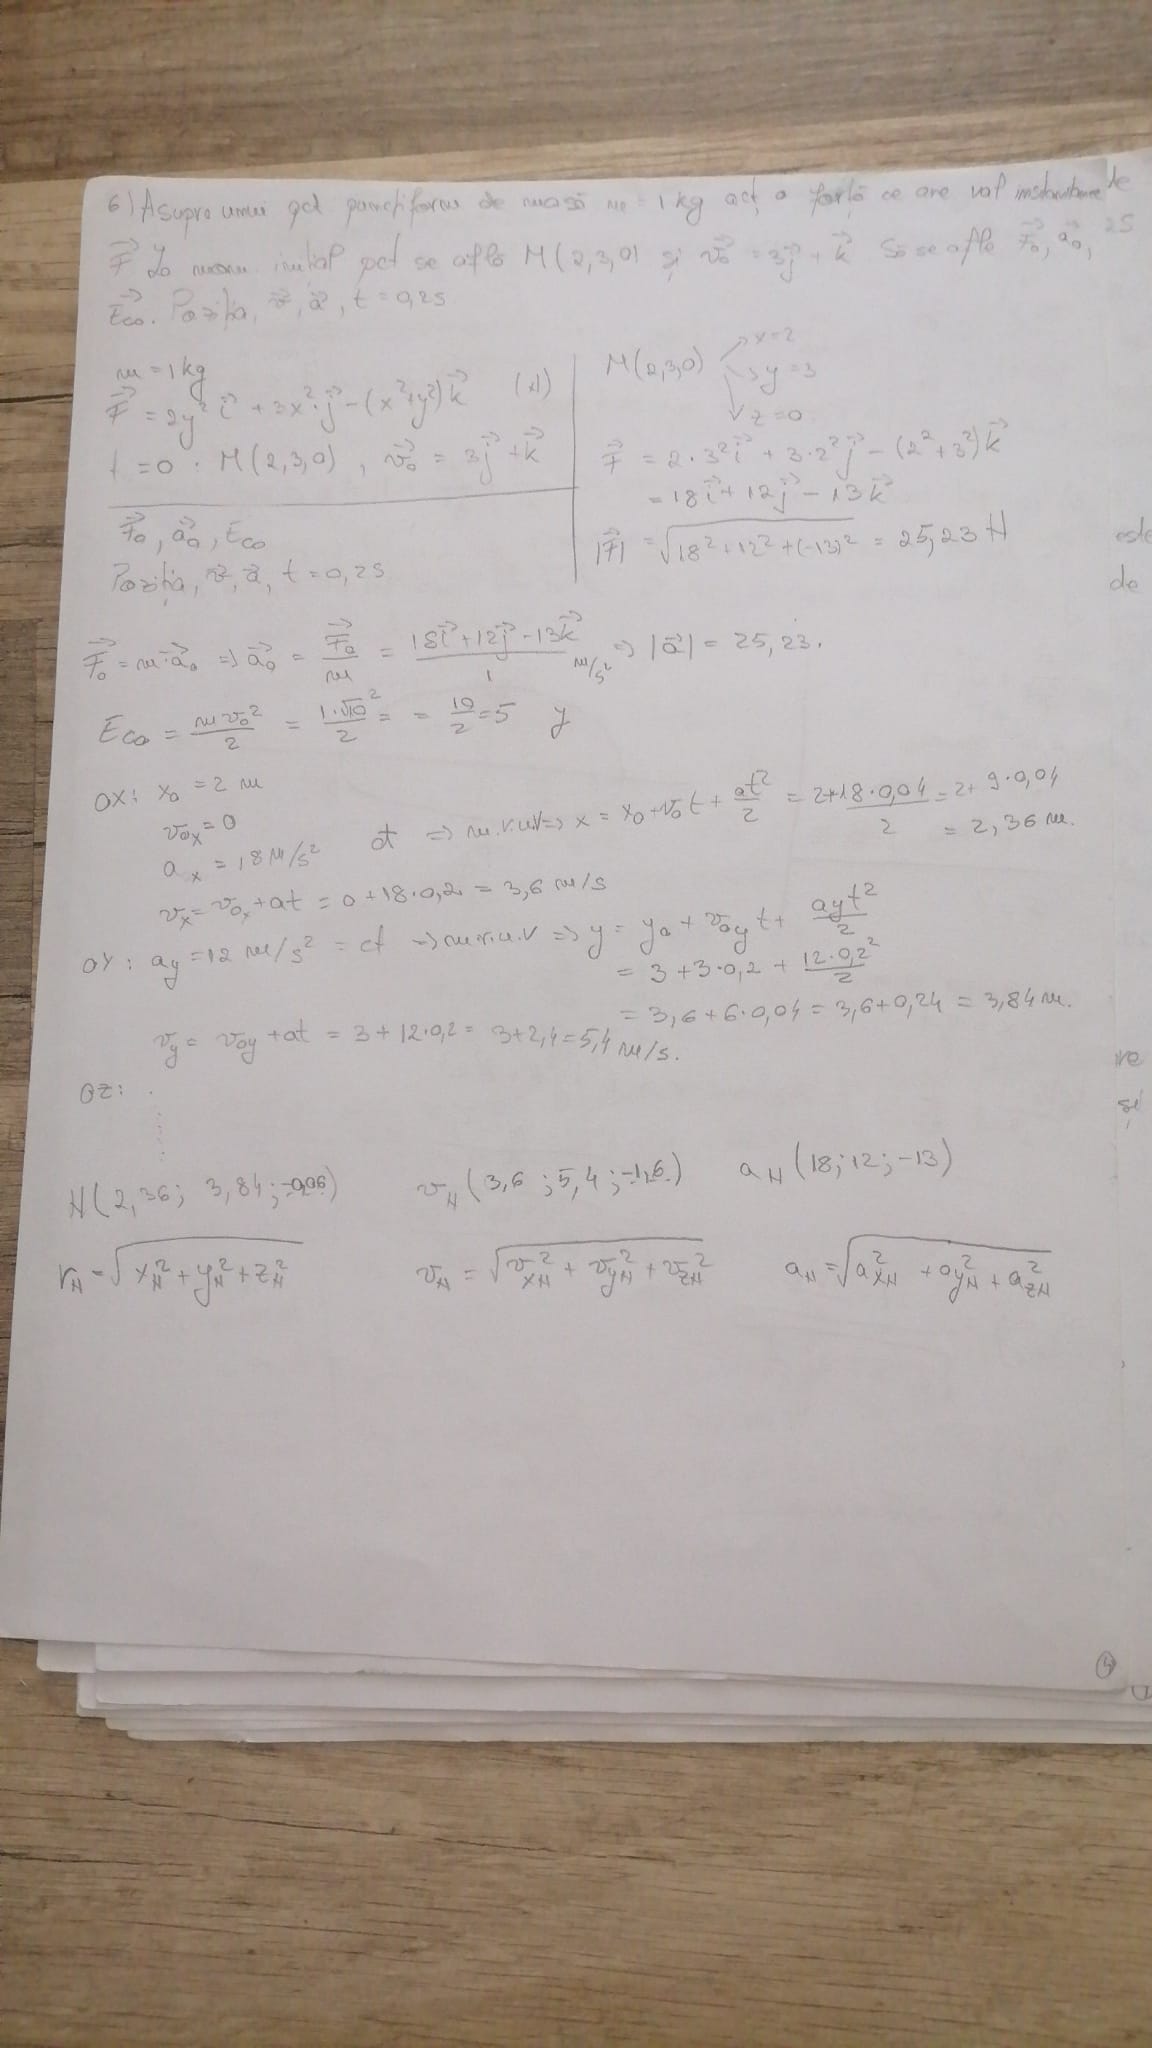 6) Asupra unui pct punctiform de masă m = 1 kg act o forță ce are val instantanee de
F⃗ La mom. inițial pct se află M(2,3,0) și v⃗₀ = 3j⃗ + k⃗ Să se afle F⃗₀, a⃗₀, 25
E⃗c₀. Poziția, v⃗, a⃗, t = 0,2s
m = 1 kg
F⃗ = 2y² i⃗ + 3x²·j⃗ - (x²+y²)k⃗ (N)
t = 0 : M(2,3,0) , v⃗₀ = 3j⃗ + k⃗
F⃗₀, a⃗₀, Ec₀
Poziția, v⃗, a⃗, t = 0,2s
M(2,3,0) x=2
y=3
z=0
F⃗ = 2·3² i⃗ + 3·2² j⃗ - (2²+3²)k⃗
= 18i⃗ + 12j⃗ - 13k⃗
|F⃗| = √(18²+12²+(-13)²) = 25,23 N
este
de
F⃗₀ = m·a⃗₀ ⇒ a⃗₀ = F⃗₀/m = (18i⃗+12j⃗-13k⃗)/1 m/s² ⇒ |a⃗| = 25,23.
Ec₀ = mv₀²/2 = 1·√10²/2 = = 10/2 = 5 J
OX: x₀ = 2 m
v₀ₓ = 0
aₓ = 18 m/s² ct ⇒ m.r.u.v ⇒ x = x₀+v₀t + at²/2 = 2+18·0,04/2 = 2+ 9·0,04
= 2,36 m.
vₓ = v₀ₓ+at = 0+18·0,2 = 3,6 m/s
OY: ay = 12 m/s² = ct ⇒ m.r.u.v ⇒ y = y₀ + v₀y t + ayt²/2
= 3+3·0,2 + 12·0,2²/2
= 3,6+6·0,04 = 3,6+0,24 = 3,84 m.
vy = v₀y +at = 3+12·0,2 = 3+2,4 = 5,4 m/s.
OZ: .
re
și
N(2,36; 3,84; -0,06) v_N(3,6 ; 5,4 ; -1,6) a_N(18; 12; -13)
r_N = √(x_N²+y_N²+z_N²) v_N = √(v_xN² + v_yN² + v_zN²) a_N = √(a_xN² + a_yN² + a_zN²)